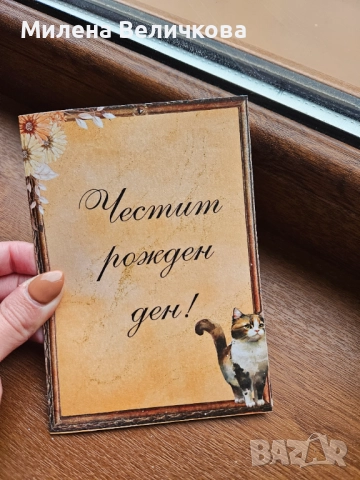 Милена Величкова
Честит
рожден
ден!
BAZAR